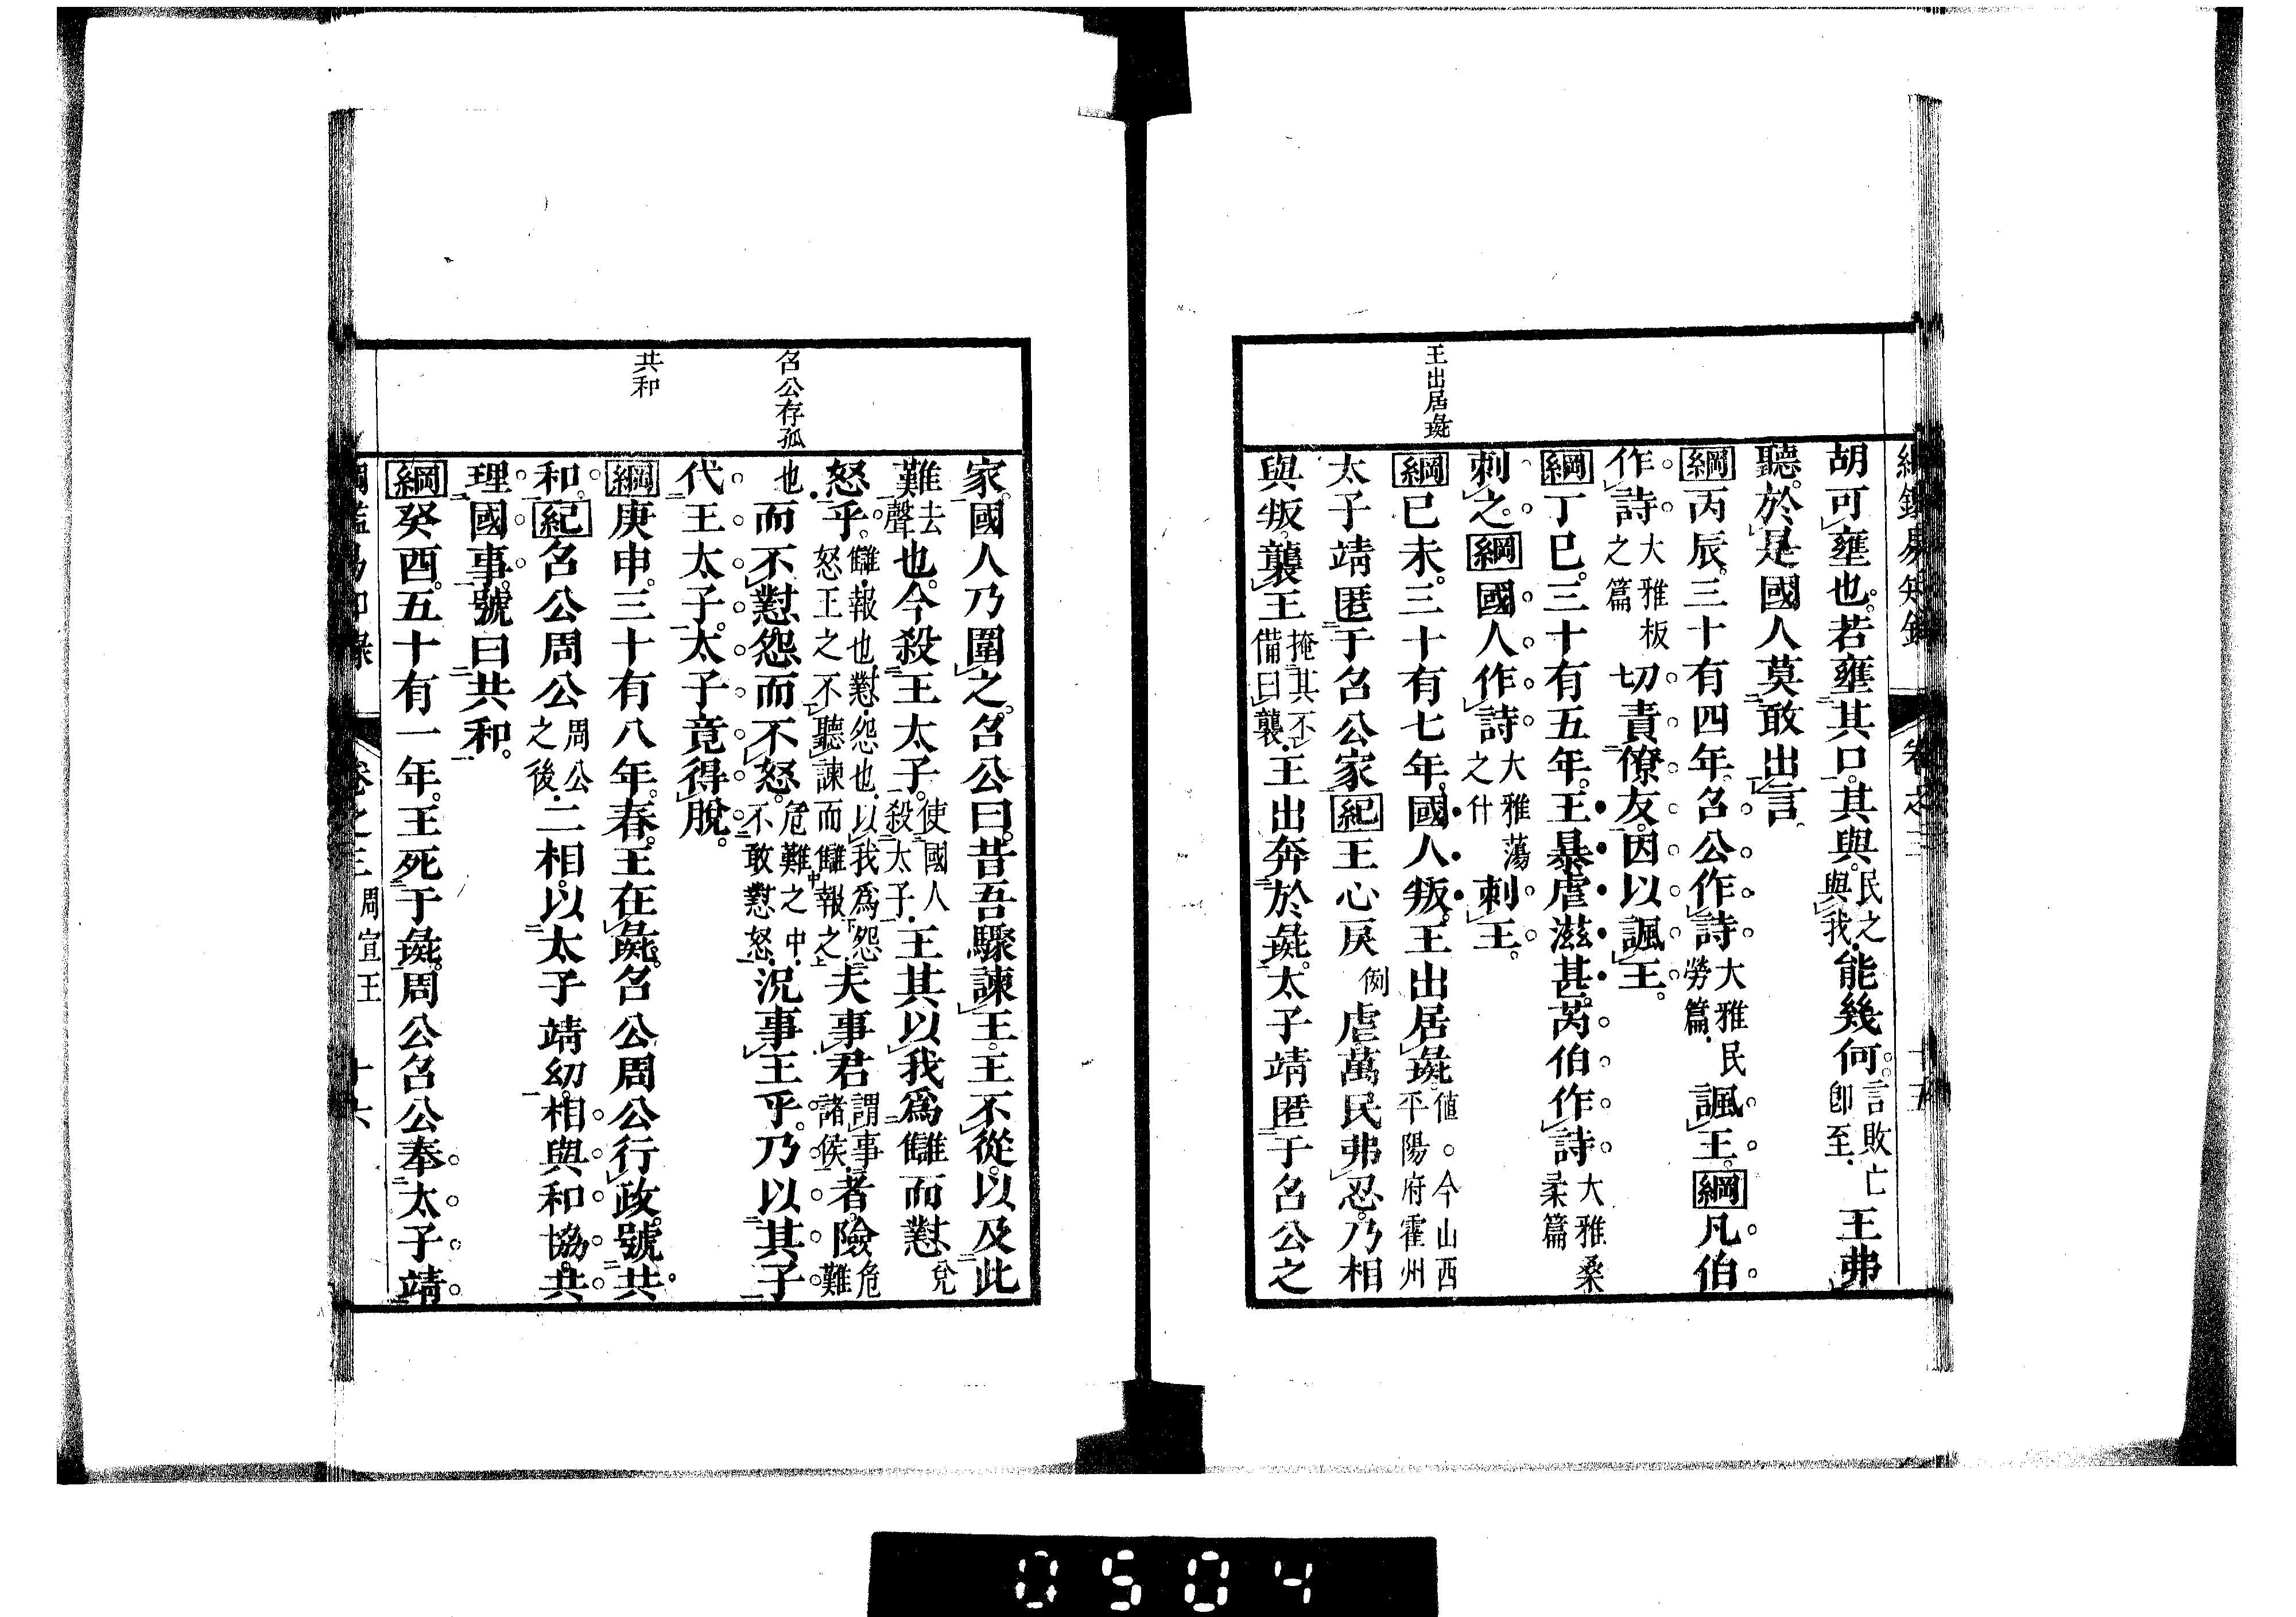 綱鑑易知錄　卷之三　十五
王出居彘
胡可壅也。若壅其口。其與。民之與我。能幾何。言敗亡卽至。王弗
聽。於是國人莫敢出言。
綱丙辰。三十有四年。召公作詩大雅民勞篇。諷王。綱凡伯
作詩大雅板之篇切責僚友。因以諷王。
綱丁巳。三十有五年。王暴虐滋甚。芮伯作詩大雅桑柔篇
刺之。綱國人作詩大雅蕩之什刺王。
綱已未。三十有七年。國人叛。王出居彘値。今山西平陽府霍州
太子靖匿于召公家紀王心戾例虐萬民弗忍。乃相
與叛。襲王掩其不備曰襲。王出奔於彘。太子靖匿于召公之
召公存孤
共和
家。國人乃圍之。召公曰。昔吾驟諫王。王不從。以及此
難去聲也。今殺王太子。使國人殺太子。王其以我爲讎而懟兌
怒乎。讎。報也。懟。怨也。以我爲怨怒王之不聽諫而讎報之夫事君謂事諸侯。者。險危難
也而不懟。怨而不怒。危難之中。不敢懟怒。況事王乎。乃以其子
代王太子。太子竟得脫。
綱庚申。三十有八年。春。王在彘。召公周公行政。號共
和。紀召公周公周公之後。二相。以太子靖幼。相與和協。共
理國事。號曰共和。
綱癸酉。五十有一年。王死于彘。周公召公奉太子靖
綱鑑易知錄　卷之三　周宣王　十六
0504